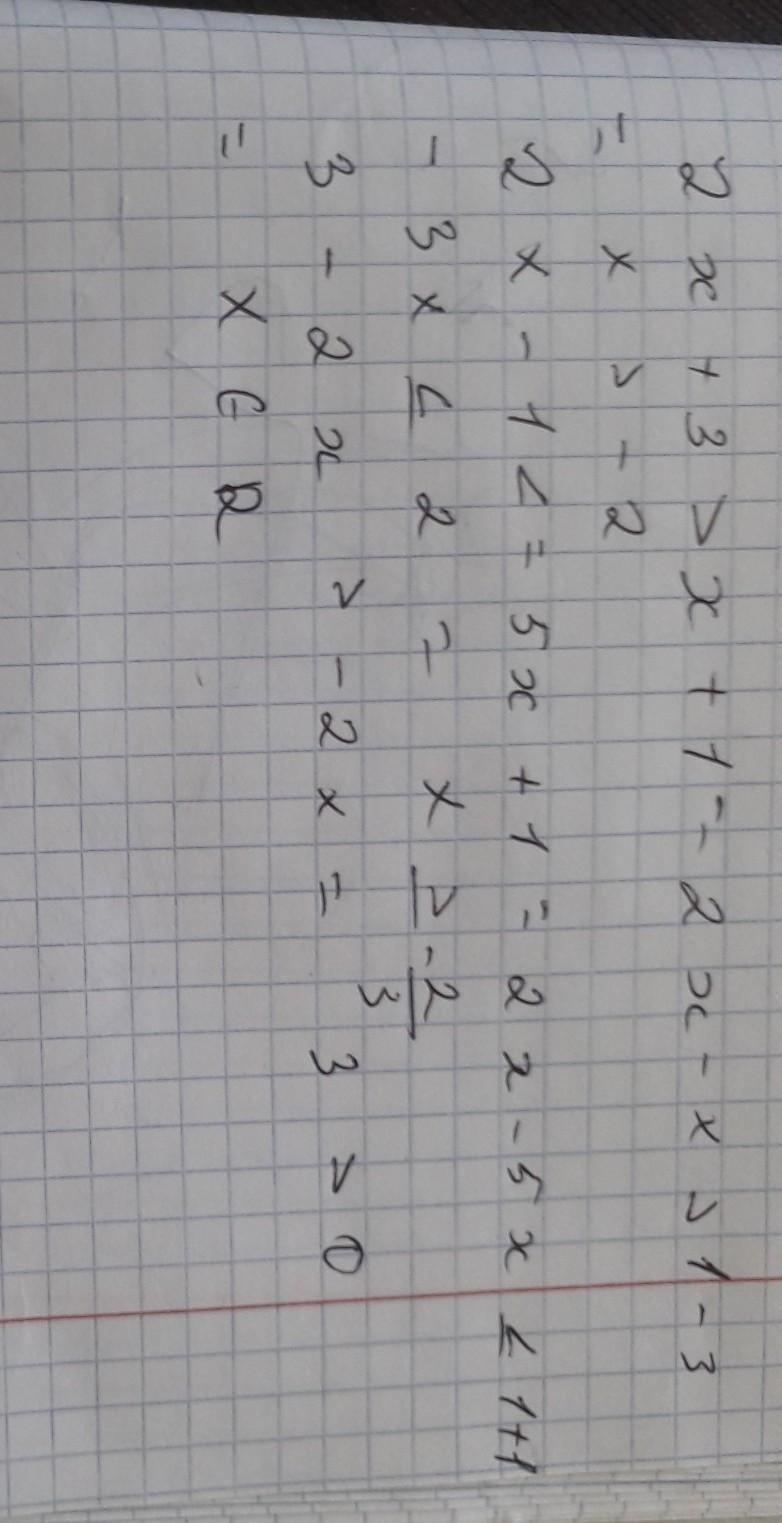 2x + 3 > x + 1 = 2x - x > 1 - 3
= x > - 2
2x - 1 < = 5x + 1 = 2x - 5x ≤ 1+1
- 3x ≤ 2 = x ≥ -2/3
3 - 2x > - 2x = 3 > 0
= x ∈ R